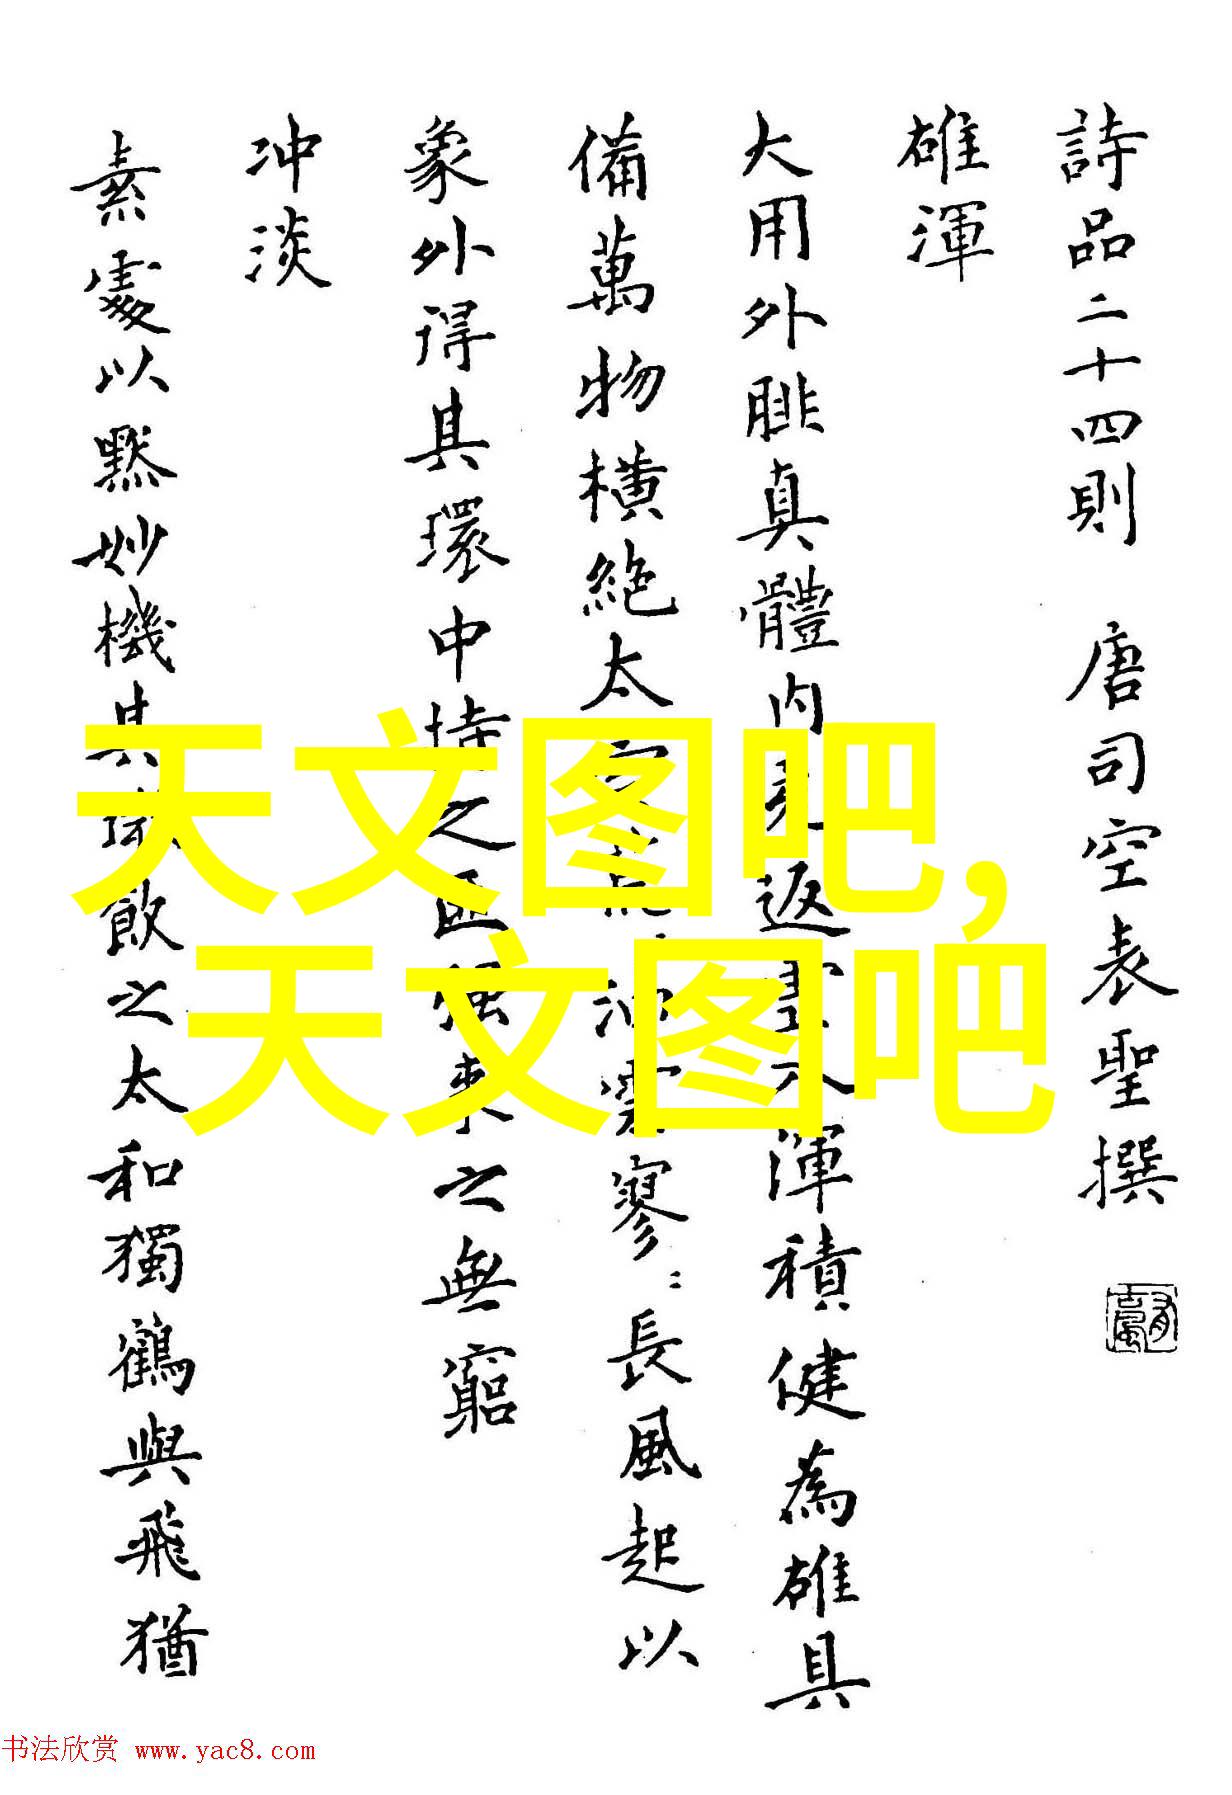 詩品二十四則 唐司空表聖撰
雄渾
大用外腓真體內充返虛入渾積健為雄具
備萬物橫絕太空荒油雲寥〻長風起以
象外得其環中持之匪強來之無窮
冲淡
素處以默妙機其微飲之太和獨鶴與飛猶
天文图吧,
天文图吧
书法欣赏 www.yac8.com